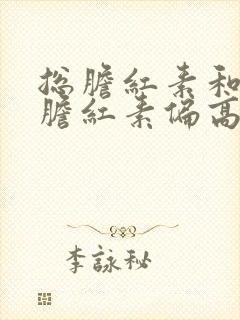 总膽紅素和
膽紅素偏高
李詠秘